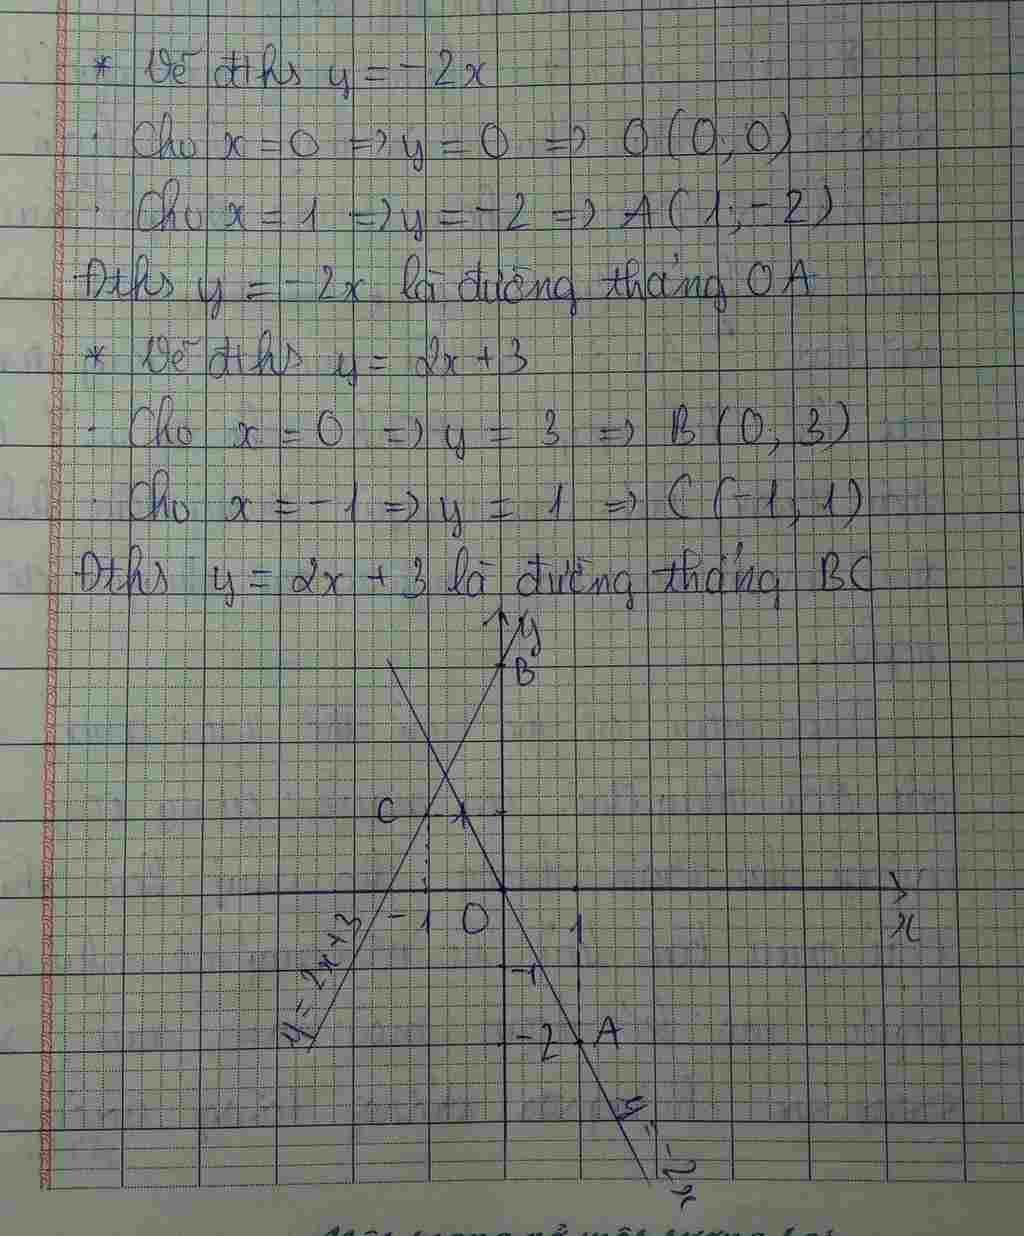 * Vẽ đths y = -2x
· Cho x = 0 => y = 0 => O (0; 0)
· Cho x = 1 => y = -2 => A (1; -2)
Đths y = -2x là đường thẳng OA
* Vẽ đths y = 2x + 3
· Cho x = 0 => y = 3 => B (0; 3)
· Cho x = -1 => y = 1 => C (-1; 1)
Đths y = 2x + 3 là đường thẳng BC
y
B
C
-1 O 1 x
y = 2x+3
-1
-2 A
y = -2x